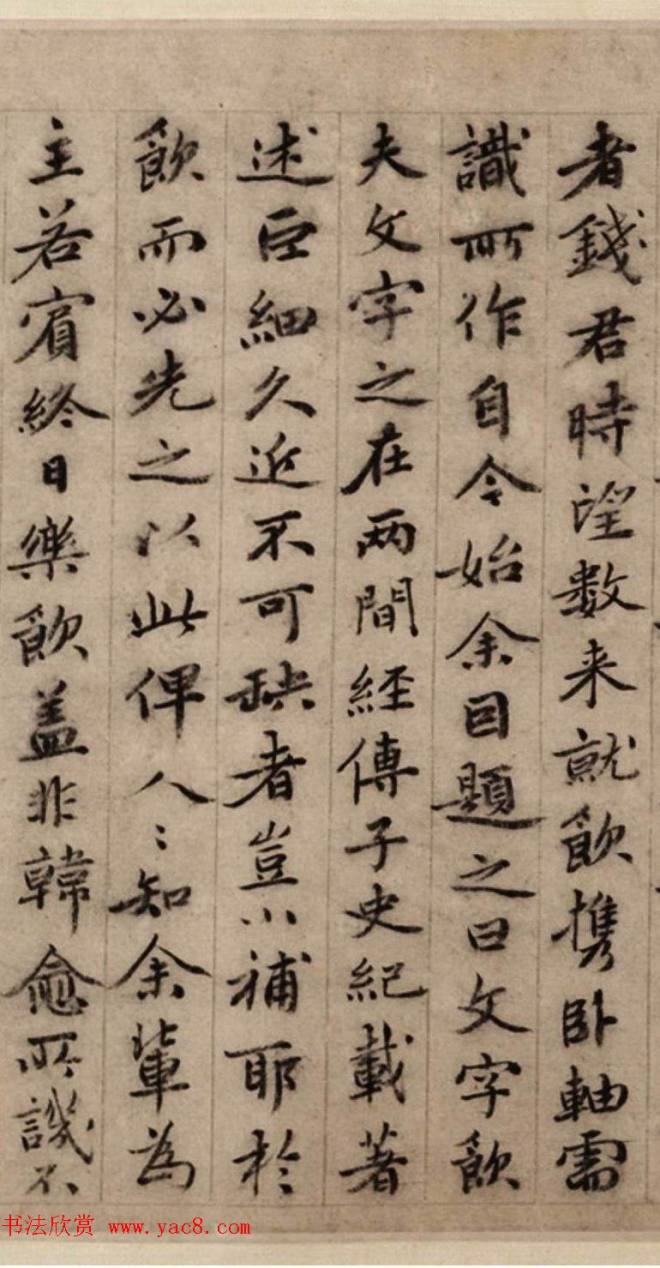 者錢君時望数来就飲携卧軸需
識所作自今始余因題之曰文字飲
夫文字之在两間経傳子史紀載著
述巨細久近不可缺者豈小補耶於
飲而必先之以此俾人〻知余輩為
主若賔終日樂飲盖非韓愈所譏不
书法欣赏 www.yac8.com